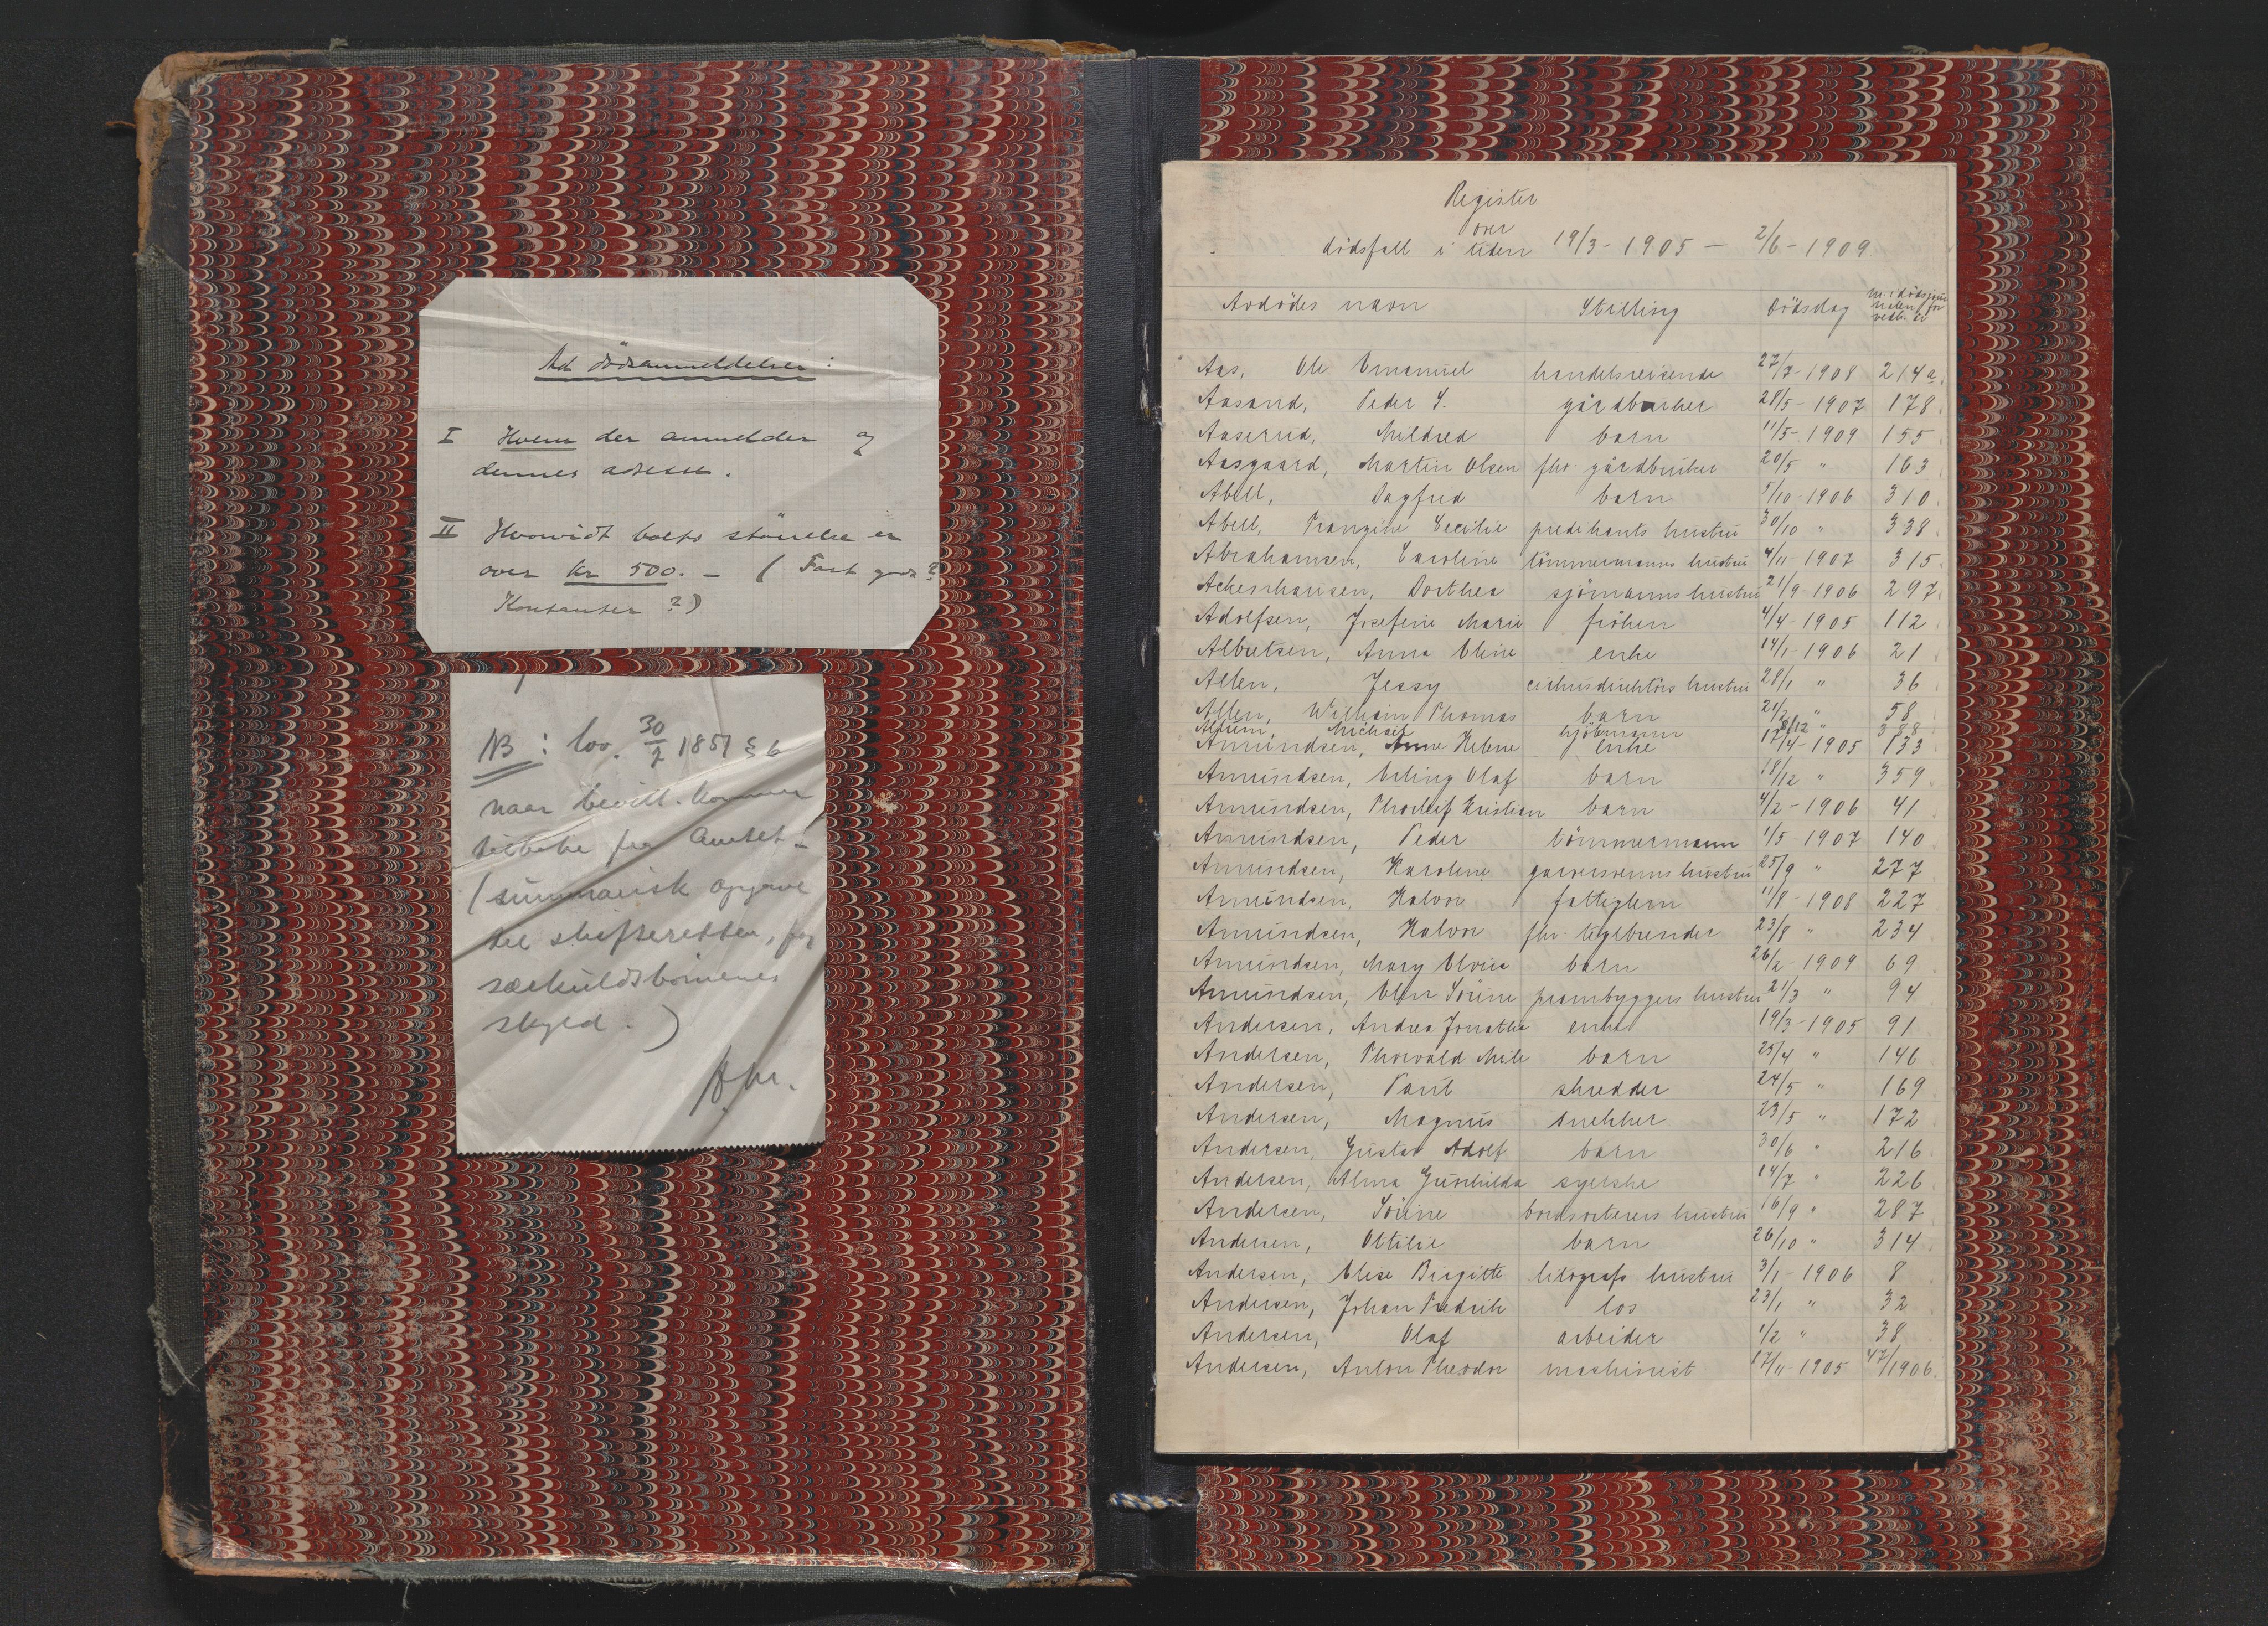 Ad dödsanmeldelser:
I Hvem der anmelder og
dennes adresse.
II Hvorvidt boets störrelse er
over kr 500. - ( Fast gods?
Kontanter ?)
NB: lov. 30/7 1851 § 6
naar bevill. kommer
tilbake fra Amtet -
(summarisk opgave
til skifteretten, for
særkuldsbörnenes
skyld.)
Register
over
dödsfall i tiden 19/3 - 1905 - 2/6 - 1909
Avdödes navn Stilling Dödsdag nr. i dödsjour
nalen for
vedk. år
Aas, Ole Emanuel handelsreisende 27/7 - 1908 214a.
Aasand, Peder S. gårdbruker 28/5 - 1907 178.
Aaserud, Mildred barn 11/5 - 1909 155.
Aasgaard, Martin Olsen fhv. gårdbruker 20/5 " 163.
Abell, Dagfred barn 5/10 - 1906 310.
Abell, Frangine Cecilie predikants hustru 30/10 " 338.
Abrahamsen, Caroline tömmermanns hustru 4/11 - 1907 315.
Achenhausen, Dorthea sjömanns hustru 21/9 - 1906 297.
Adolfsen, Josefine Marie fröken 4/4 - 1905 112.
Albretsen, Anna Oline enke 14/1 - 1906 21.
Allen, Jessy cirkusdirektörs hustru 28/1 " 36.
Allen, William Thomas barn 21/2 " 58.
Michael kjöbmann 8/12 " 388
Amundsen, Anne Helene enke 17/4 - 1905 133.
Amundsen, Erling Olaf barn 18/12 " 359.
Amundsen, Thorleif Kristian barn 4/2 - 1906 41.
Amundsen, Peder tömmermann 1/5 - 1907 140.
Amundsen, Karoline garversvenns hustru 25/9 " 277
Amundsen, Halvor fattiglem 11/8 - 1908 227.
Amundsen, Halvor fhv. teglbrender 23/8 " 234
Amundsen, Mary Elvira barn 26/2 - 1909 69.
Amundsen, Elen Sörine prambyggers hustru 21/3 " 94
Andersen, Andrea Jonathe enke 19/3 - 1905 91
Andersen, Thorvald Mile barn 25/4 " 146
Andersen, Paul skredder 24/5 " 169
Andersen, Magnus snekker 23/5 " 172
Andersen, Gustav Adolf barn 30/6 " 216
Andersen, Alma Gunhilda syerske 14/7 " 226.
Andersen, Sörine bordsorterers hustru 16/9 " 287
Andersen, Ottilie barn 26/10 " 314.
Andersen, Elise Birgitte litografs hustru 3/1 - 1906 8
Andersen, Johan Fredrik los 23/1 " 32
Andersen, Olaf arbeider 1/2 " 38
Andersen, Anton Theodor maskinist 17/11 - 1905 47/1906.